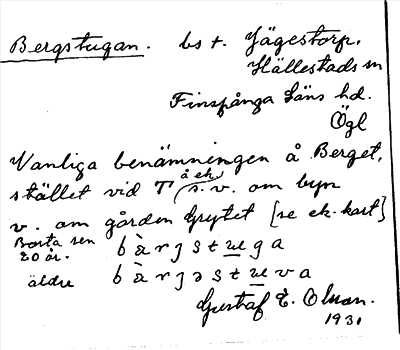 Bergstugan. bs t. Jägestorp,
Hällestads sn
Finspånga läns hd.
Ögl
Vanliga benämningen å Berget,
stället vid T (å ek.) s.v. om byn
v. om gården Grytet [se ek. kart]
Borta sen
20 år. b à r j s t u g a
äldre b à r j ə s t u v a
Gustaf E. Olsson.
1931